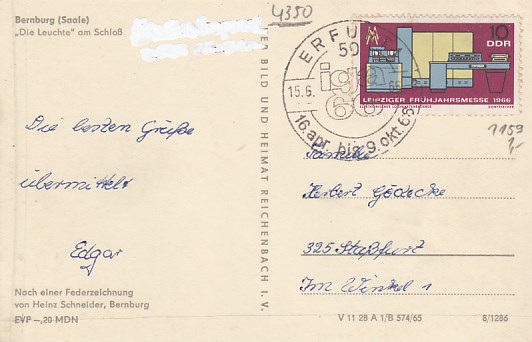 Bernburg (Saale)
„Die Leuchte" am Schloß
4350
Die besten Grüße
übermittelt
Edgar
Nach einer Federzeichnung
von Heinz Schneider, Bernburg
EVP –,20 MDN
BILD UND HEIMAT REICHENBACH I. V.
ERFU
50
iga
15.6.
66
16.apr. bis 9.okt.66
10
DDR
LEIPZIGER FRÜHJAHRSMESSE 1966
1159
Familie
Herbert Gödecke
325 Staßfurt
Im Winkel 1
V 11 28 A 1/B 574/65
8/1286